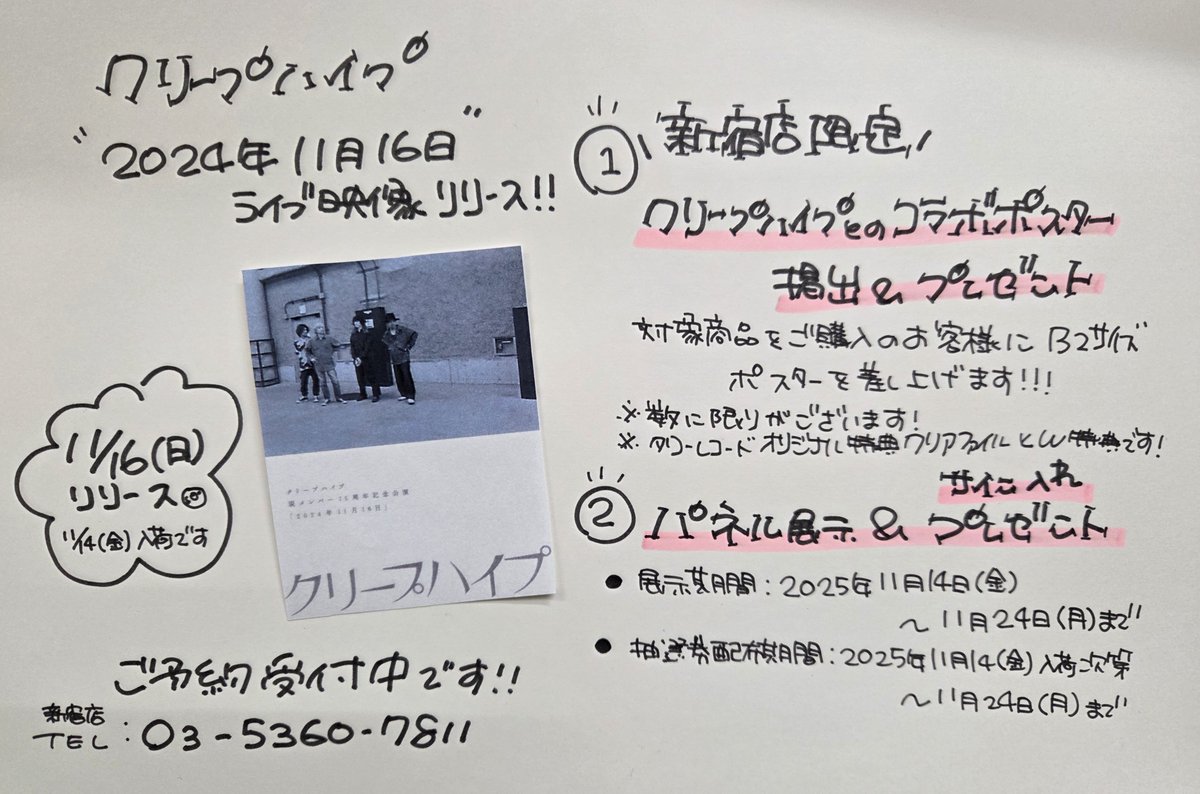 クリープハイプ
"2024年11月16日"
ライブ映像 リリース!!
11/16(日)
リリース
11/14(金)入荷です
クリープハイプ
現メンバー15周年記念公演
「2024年11月16日」
クリープハイプ
ご予約受付中です!!
新宿店
TEL:03-5360-7811
① 新宿店限定
クリープハイプとのコラボポスター
掲出&プレゼント
対象商品をご購入のお客様にB2サイズ
ポスターを差し上げます!!!
※数に限りがございます!
※タワーレコードオリジナル特典クリアファイルとW特典です!
サイン入れ
② パネル展示&プレゼント
●展示期間:2025年11月14日(金)
～11月24日(月)まで
●抽選券配布期間:2025年11月14(金)入荷次第
～11月24日(月)まで